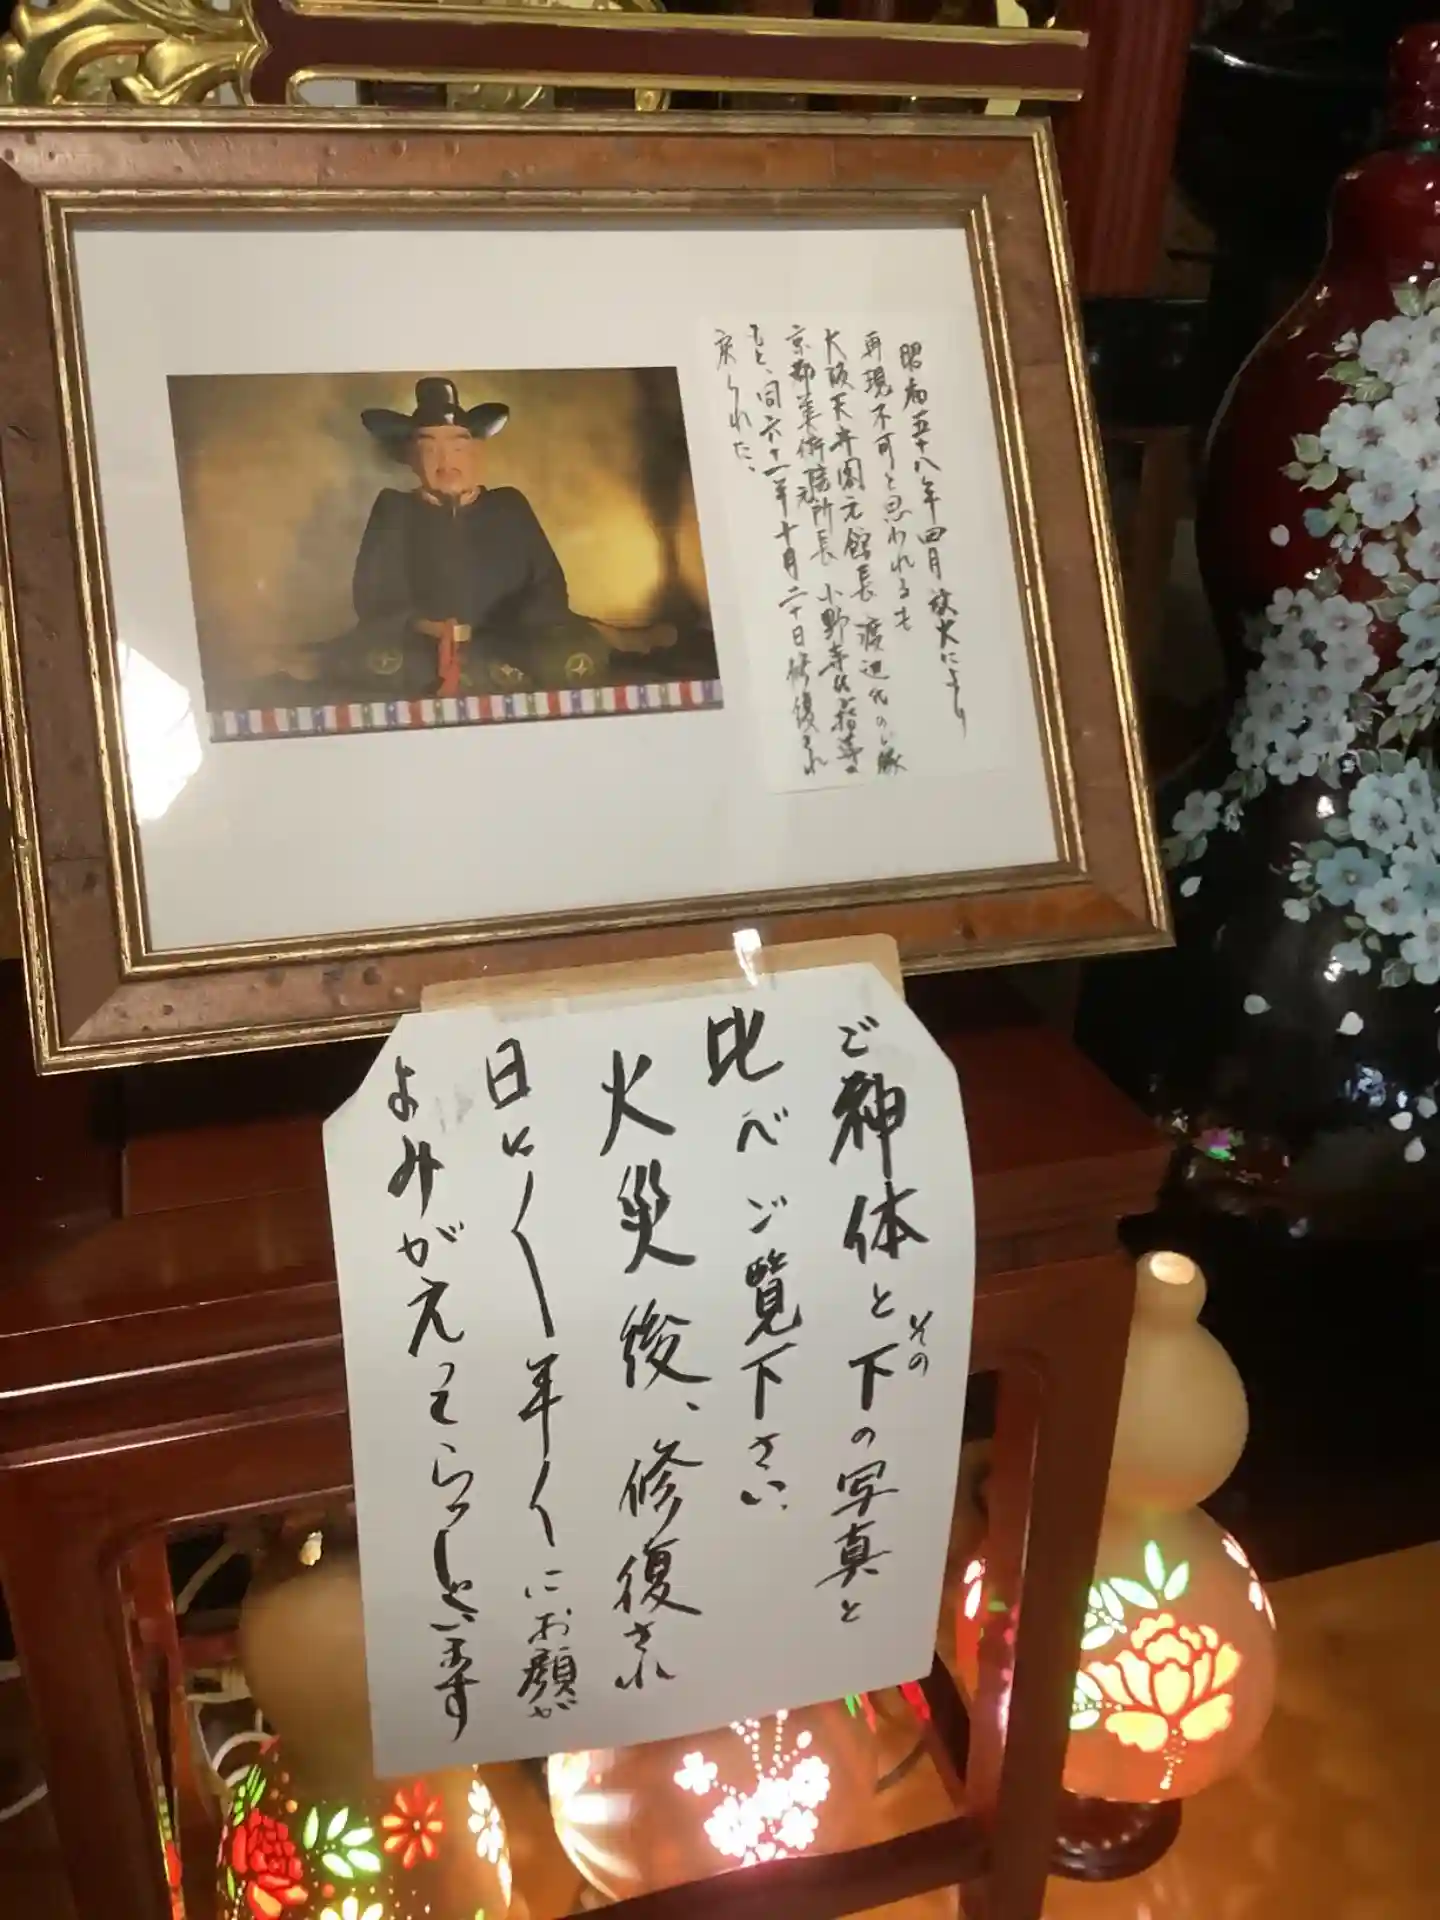 昭和五十八年四月放火により
再現不可と思われるも
大阪天守閣元館長 渡辺氏のご縁
京都美術院元所長 小野寺氏ご指導の
もと、同六十一年十月二十日修復され
戻られた。
ご神体とその下の写真と
比べご覧下さい
火災後、修復され
日に〱年〱にお顔が
よみがえってらっしゃいます